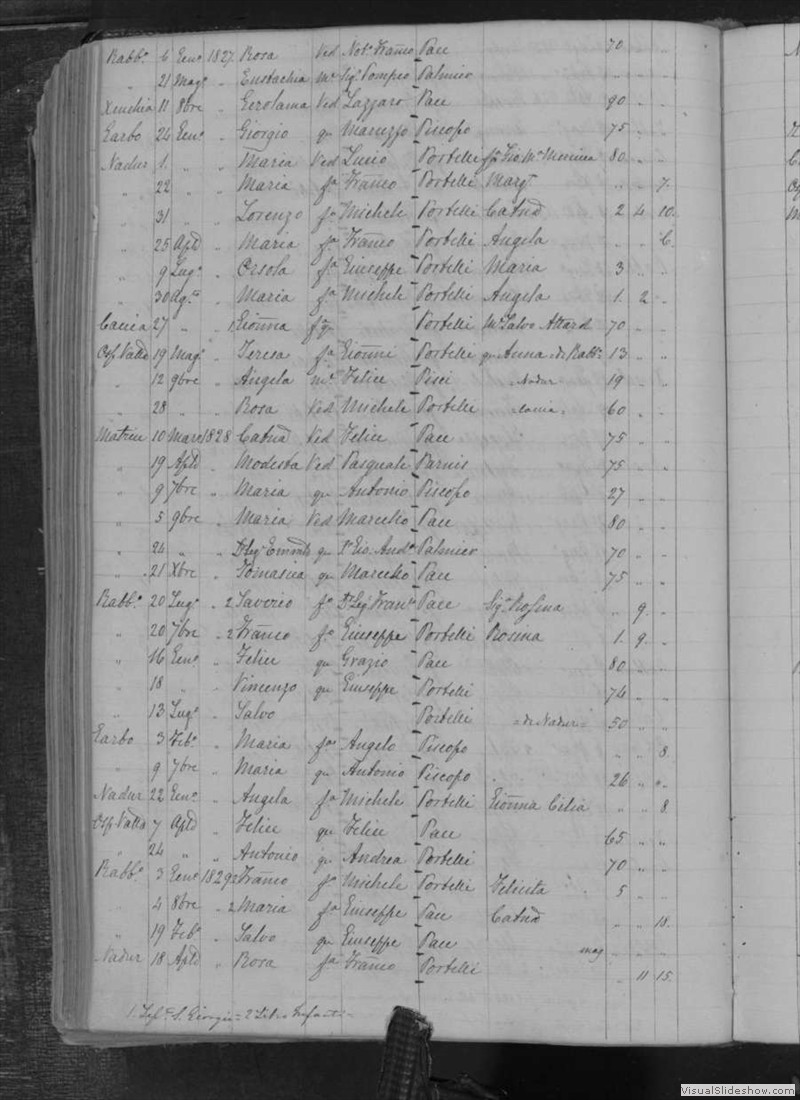 Rabb.o 6 Gen.o 1827 Rosa Ved Not.o Franco Pace 70 " "
" 21 Mag.o " Eustachia m.e Sig. Pompeo Palmier " " "
Xeuchia 11 8bre " Gerolama Ved Lazzaro Pace 90 " "
Garbo 24 Gen.o " Giorgio qu Maruzzo Piscopo 75 " "
Nadur 1 " " Maria Ved Lucio Portelli 80 " "
" 22 " " Maria fa Franco Portelli Marg.t " " 7
" 31 " " Lorenzo fo Michele Portelli Catna 2 4 10
" 25 Aple " Maria fa Franco Portelli Angela " " 6
" 9 Lug.o " Orsola fa Giuseppe Portelli Maria 3 " "
" 30 Ag.to " Maria fa Michele Portelli Angela 1 2 "
Cacia 27 " " 1 Gionna Portelli M. Salvo Attard 70 " "
Osp. Vallta 19 Mag.o " Teresa fa Gionni Portelli qu Anna di Rabb.o 13 " "
" 12 9bre " Angela m.e Felice Pisci Nadur 19 " "
" 28 " " Rosa Ved Michele Portelli Cacia 60 " "
Matrice 10 Marz 1828 Catna Ved Felice Pace 75 " "
" 19 Aple " Modesta Ved Pasquale Parnis 75 " "
" 9 7bre " Maria qu Antonio Piscopo 27 " "
" 5 9bre " Maria Ved Marcello Pace 80 " "
" 24 " " qu Gio. And.a Palmier 70 " "
" 21 Xbre " Tomasica qu Marcello Pace 75 " "
Rabb.o 20 Lug.o " 2 Saverio fo Pace Sig.a Rosina " 9 "
" 20 7bre " 2 Franco fo Giuseppe Portelli Rosina 1 9 "
" 16 Gen.o " Felice qu Grazio Pace 80 " "
" 18 " " Vincenzo qu Giuseppe Portelli 74 " "
" 13 Lug.o " Salvo Portelli = di Nadur = 50 " "
Garbo 3 Feb.o " Maria fa Angelo Piscopo " " 8
" 9 7bre " Maria qu Antonio Piscopo 26 " "
Nadur 22 Gen.o " Angela fa Michele Portelli Gionna Cilia " " 8
Osp. Vallta 7 Aple " Felice qu Felice Pace 65 " "
" 24 " " Antonio qu Andrea Portelli 70 " "
Rabb.o 3 Gen.o 1829 2 Franco fo Michele Portelli Felicita 5 " "
" 4 8bre " 2 Maria fa Giuseppe Pace Catna " " 18
" 19 Feb.o " Salvo qu Giuseppe Pace mag " " "
Nadur 18 Aple " Rosa fa Franco Portelli " 11 15
S. Giorgio = 2 Libro Infanti =
VisualSlideshow.com